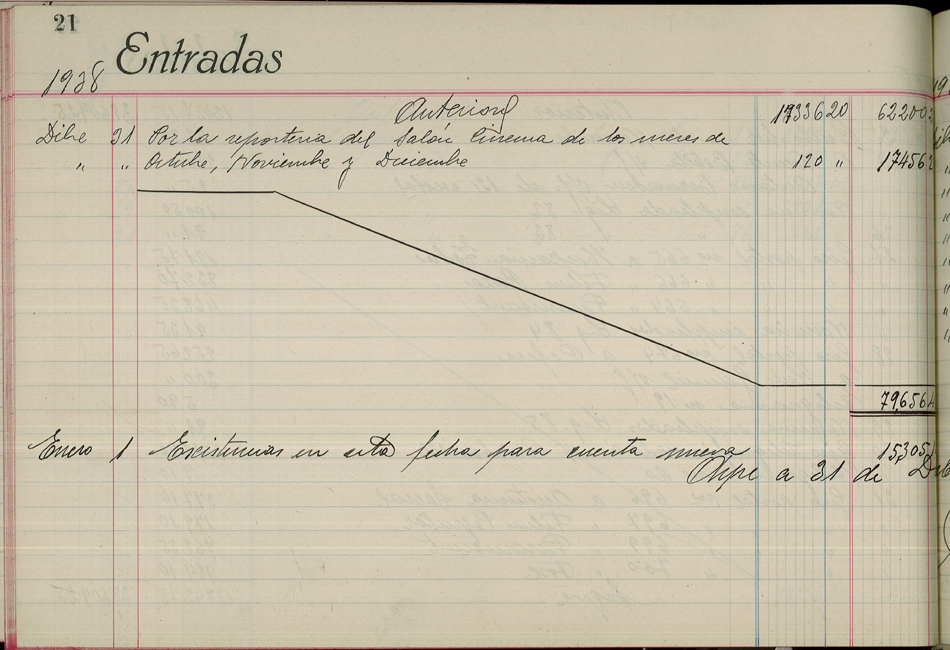 21
Entradas
1938
Anterior 1733620 622002
Dibe 31 Por la reposteria del Salón Cinema de los meses de
" " Octubre, Noviembre y Diciembre 120 " 174562
79,6564
Enero 1 Existencias en esta fecha para cuenta nueva 15,305
a 31 de